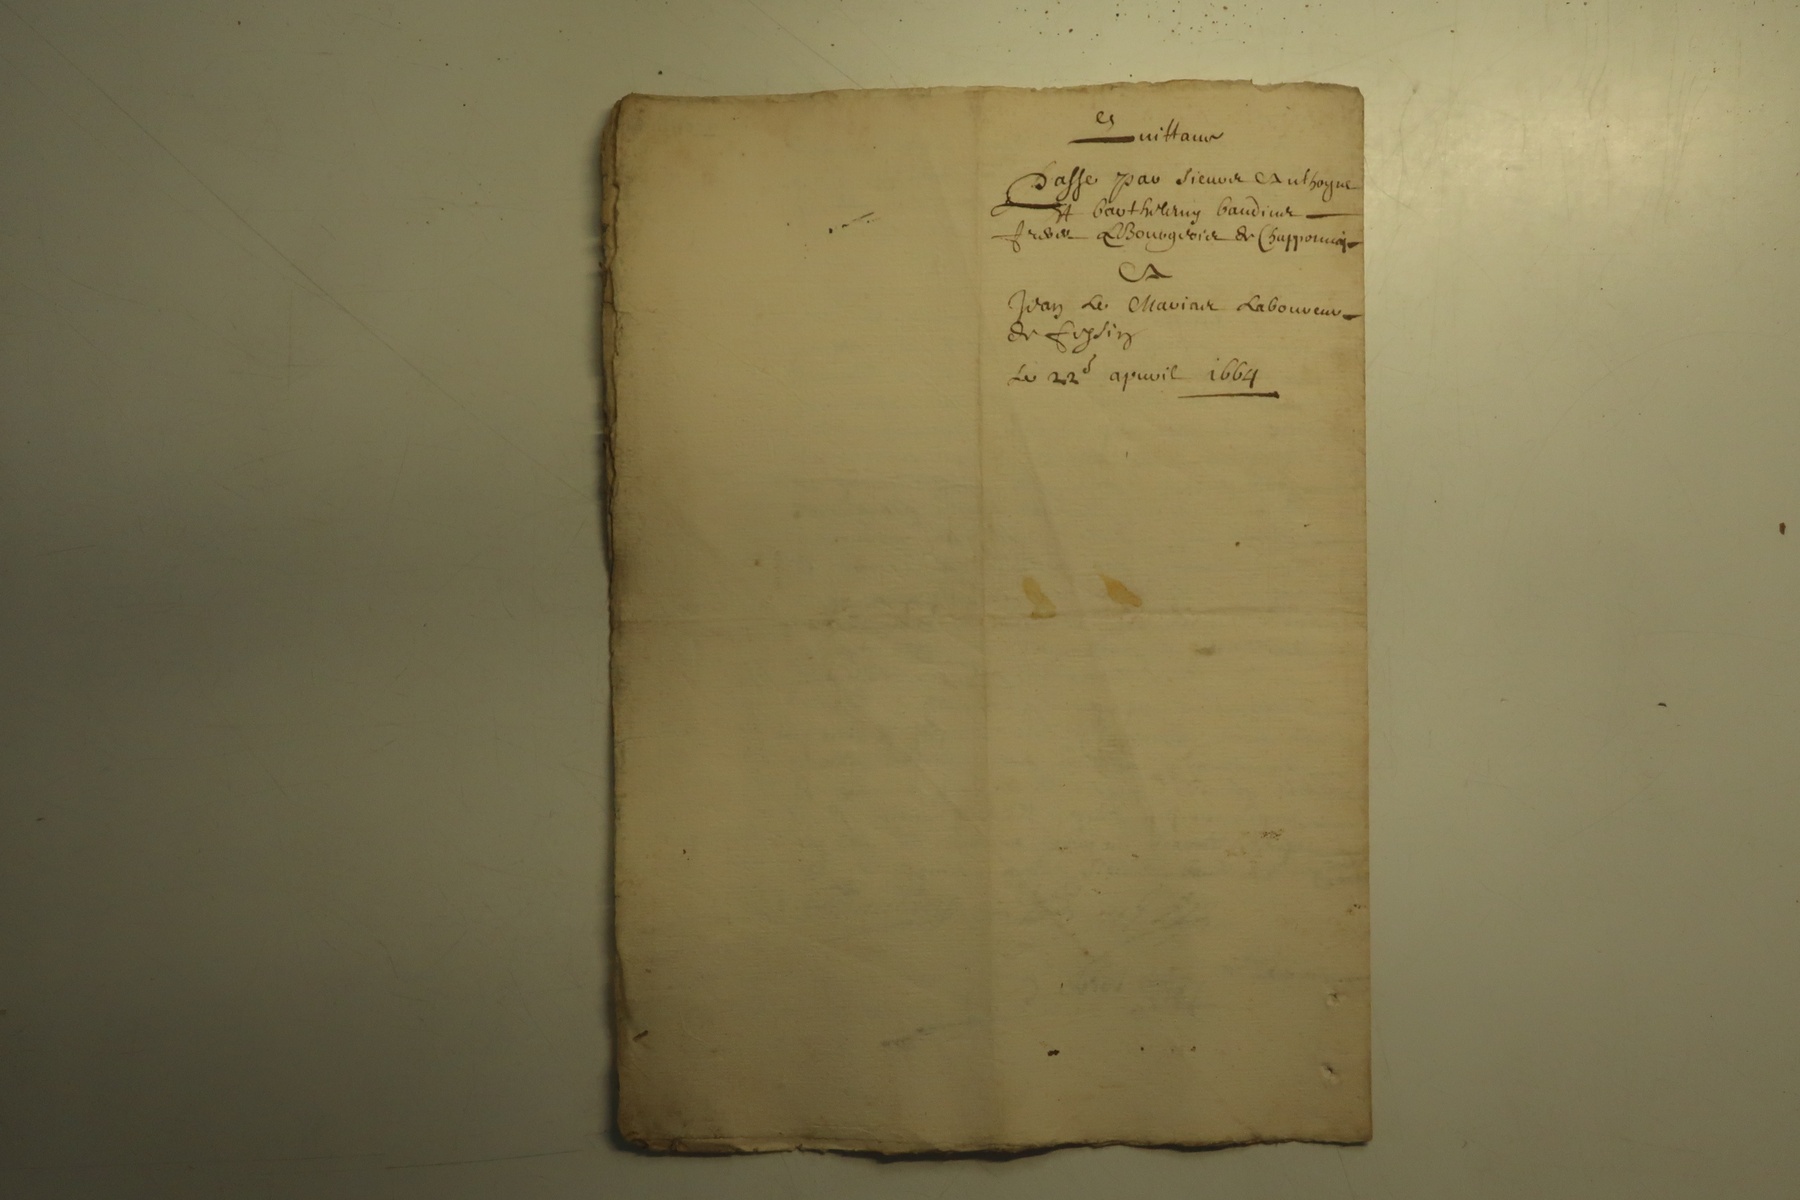 Quittance
Passe par sieurs Anthoyne
Et barthelemy baudins
freres Bourgeois de Chapponnay
A
Jean Le Labboureur
de feysin
Le 22e apvril 1664